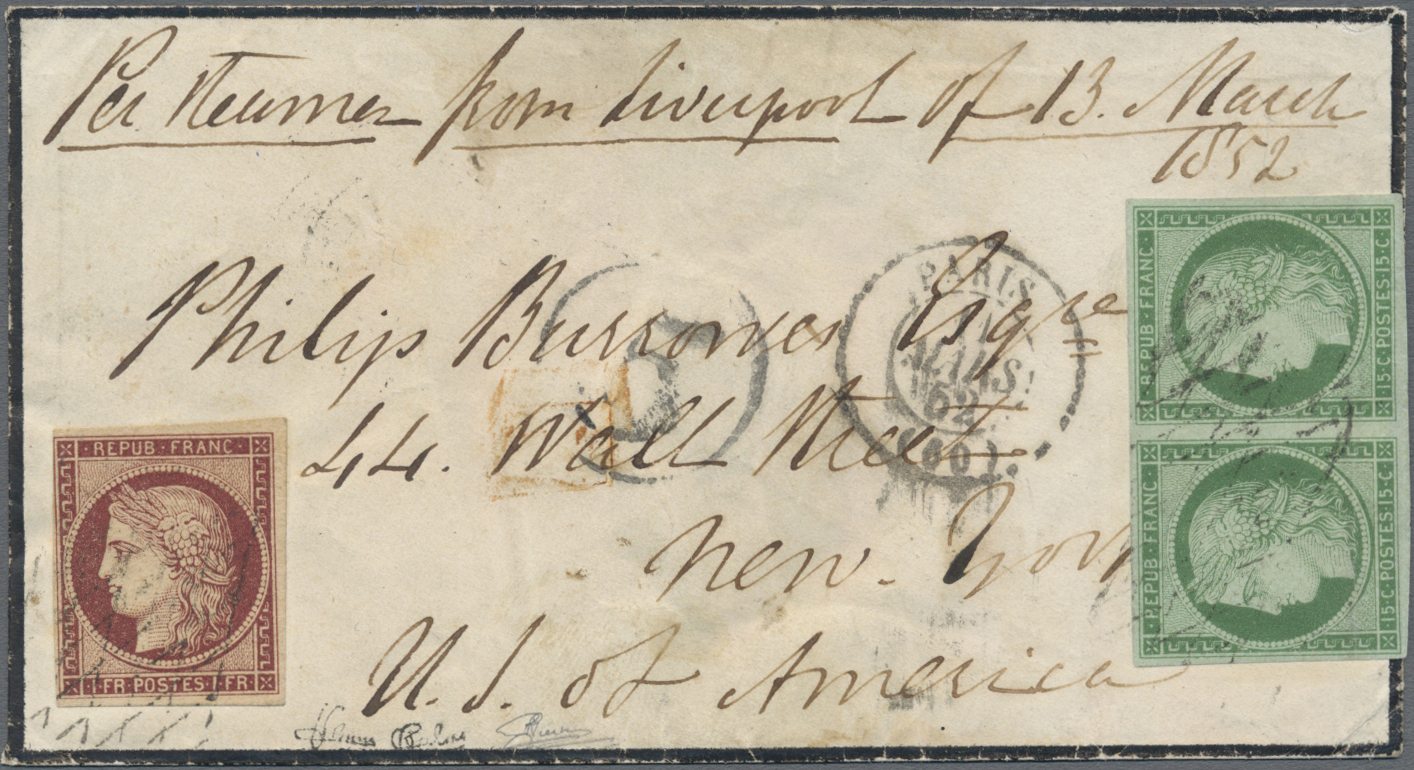 Per steamer from Liverpool of 13. March
1852
Philip Burrowes Esqre
44. Wall Street
New. York
U. S. of America
PARIS
MARS
52
(60)
REPUB·FRANC·
1·FR·POSTES·1·FR·
REPUB·FRANC·
15·C·POSTES·15·C·
REPUB·FRANC·
15·C·POSTES·15·C·